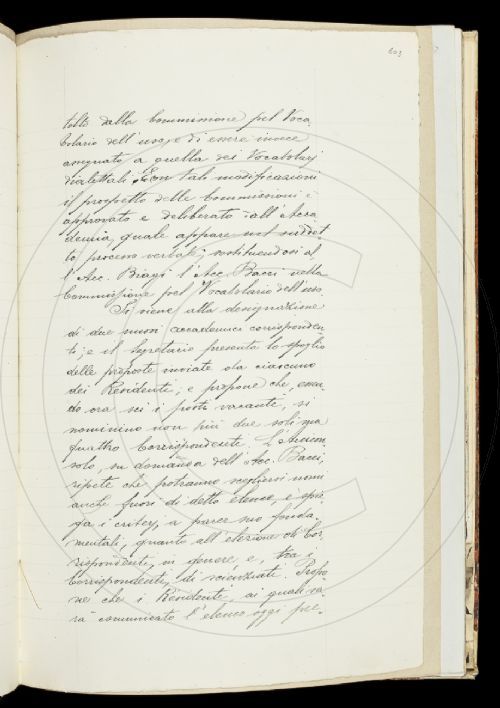 603
tolto dalla Commissione pel Voca
bolario dell'uso, e di essere invece
assegnato a quella dei Vocabolarj
dialettali. Con tali modificazioni
il prospetto delle Commissioni è
approvato e deliberato dall'Acca
demia, quale appare nel suddet
to processo verbale, sostituendosi al
l'Acc. Biagi l'Acc. Bacci nella
Commissione pel Vocabolario dell'uso.
Si viene alla designazione
di due nuovi accademici corrisponden
ti; e il Segretario presenta lo spoglio
delle proposte inviate da ciascuno
dei Residenti, e propone che, essen
do ora sei i posti vacanti, si
nominino non più due soli ma
quattro Corrispondenti. L'Arcicon
solo, su domanda dell'Acc. Bacci,
ripete che potranno scegliersi nomi
anche fuori di detto elenco, e spie
ga i criterj, a parer suo fonda-
mentali, quanto all'elezione di Cor
rispondenti, in genere, e, tra i
Corrispondenti, di scienziati. Propo
ne che i Residenti, ai quali sa
rà comunicato l'elenco oggi pre-